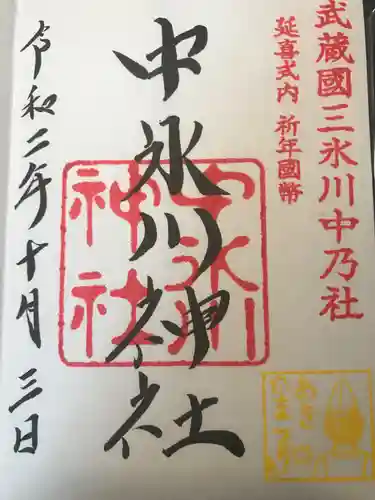 武蔵國三氷川中乃社
延喜式内 祈年國幣
中氷川神社
中氷川
神社
令和二年十月三日